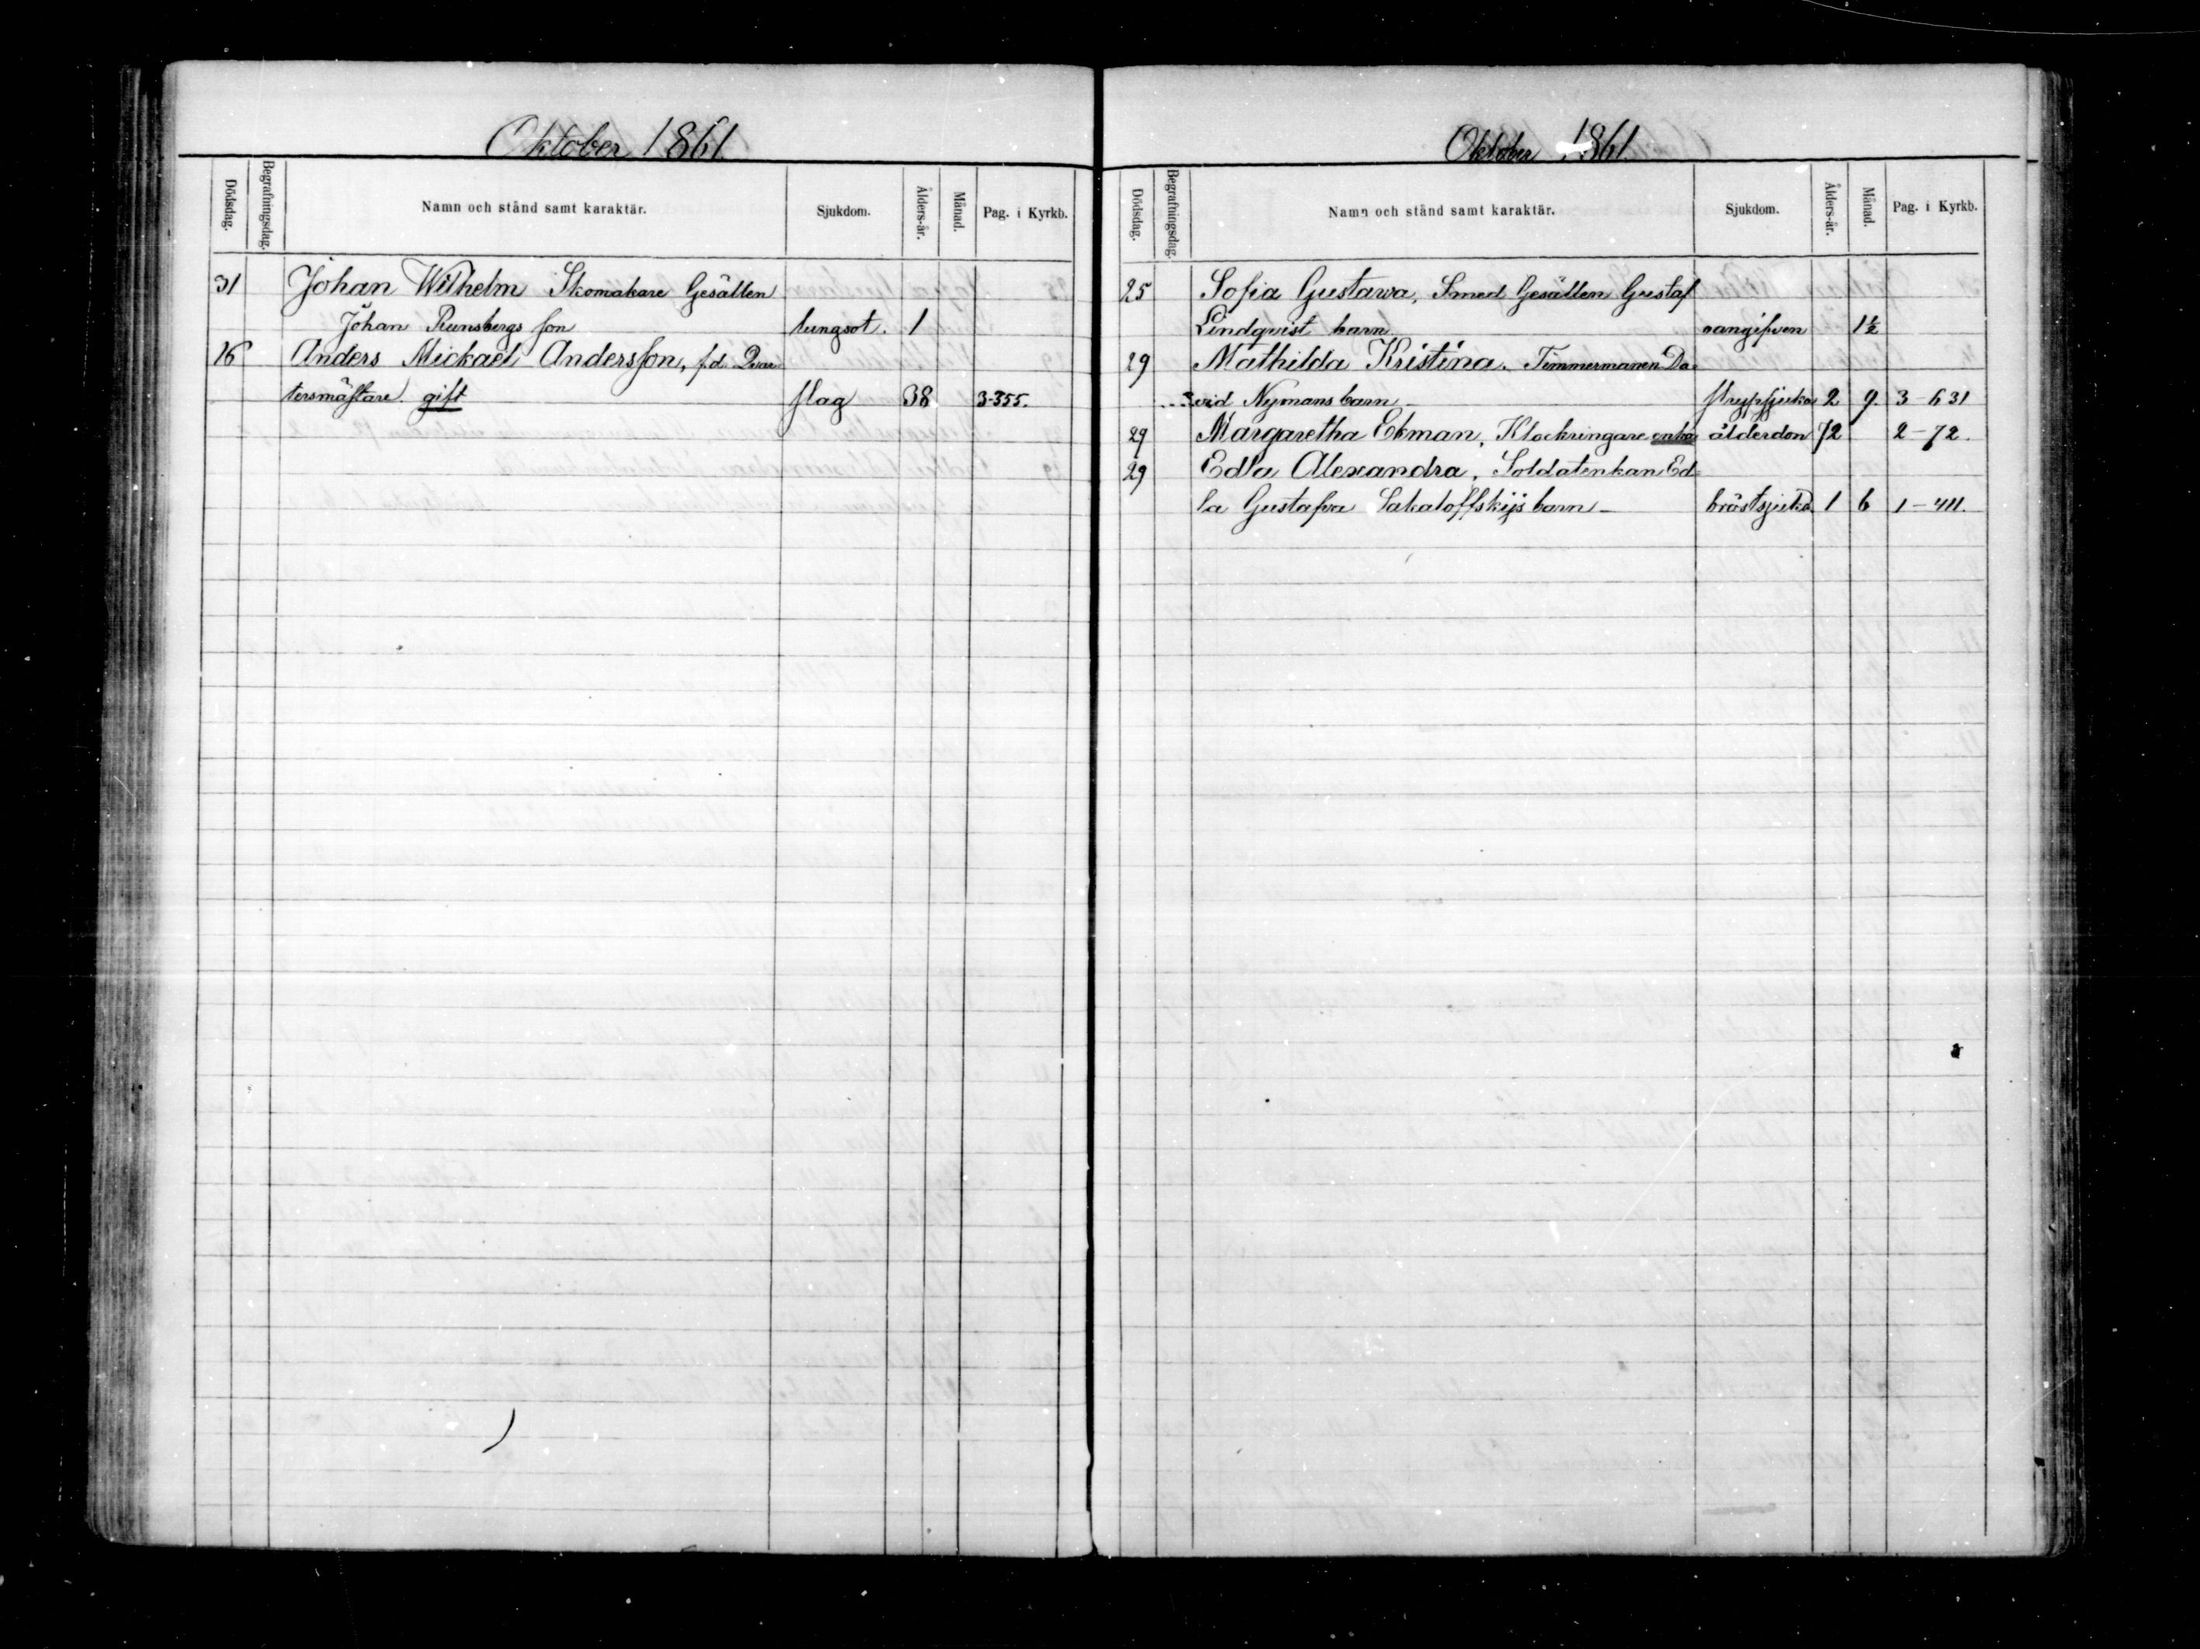 Oktober 1861.
Dödsdag. Begrafningsdag. Namn och stånd samt karaktär. Sjukdom. Ålders-år. Månad. Pag. i Kyrkb.
31 Johan Wilhelm Skomakare Gesällen
Johan Runsbergs son lungsot. 1
16 Anders Mickael Andersson, f.d. Quar-
tersmästare. gift slag 38 3-355.
Oktober 1861.
Dödsdag. Begrafningsdag. Namn och stånd samt karaktär. Sjukdom. Ålders-år. Månad. Pag. i Kyrkb.
25 Sofia Gustava, Smed Gesällen Gustaf
Lindqvist barn oangifven 1½
29 Mathilda Kristina. Timmermannen Da-
vid Nymans barn - strypsjuka 2 9. 3-631
29 Margaretha Ekman, Klockringare enka ålderdom 72 2-72.
29 Edla Alexandra, Soldatenkan Ed-
la Gustafva barn - bröstsjukd. 1 6 1-411.